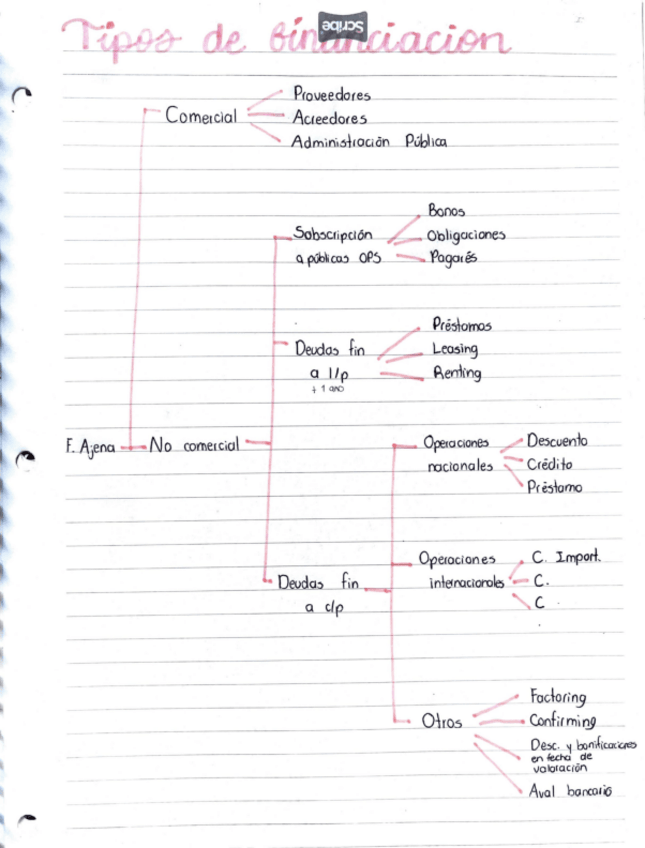 Tipos de financiacion
Scribe
Comercial
Proveedores
Acreedores
Administración Pública
Subscripción
a públicas OPS
Bonos
Obligaciones
Pagarés
Deudas fin
a l/p
+ 1 ano
Préstamos
Leasing
Renting
F. Ajena
No comercial
Operaciones
nacionales
Descuento
Crédito
Préstamo
Deudas fin
a c/p
Operaciones
internacionales
C. Import.
C.
C
Otros
Factoring
Confirming
Desc. y bonificaciones
en fecha de
valoración
Aval bancario